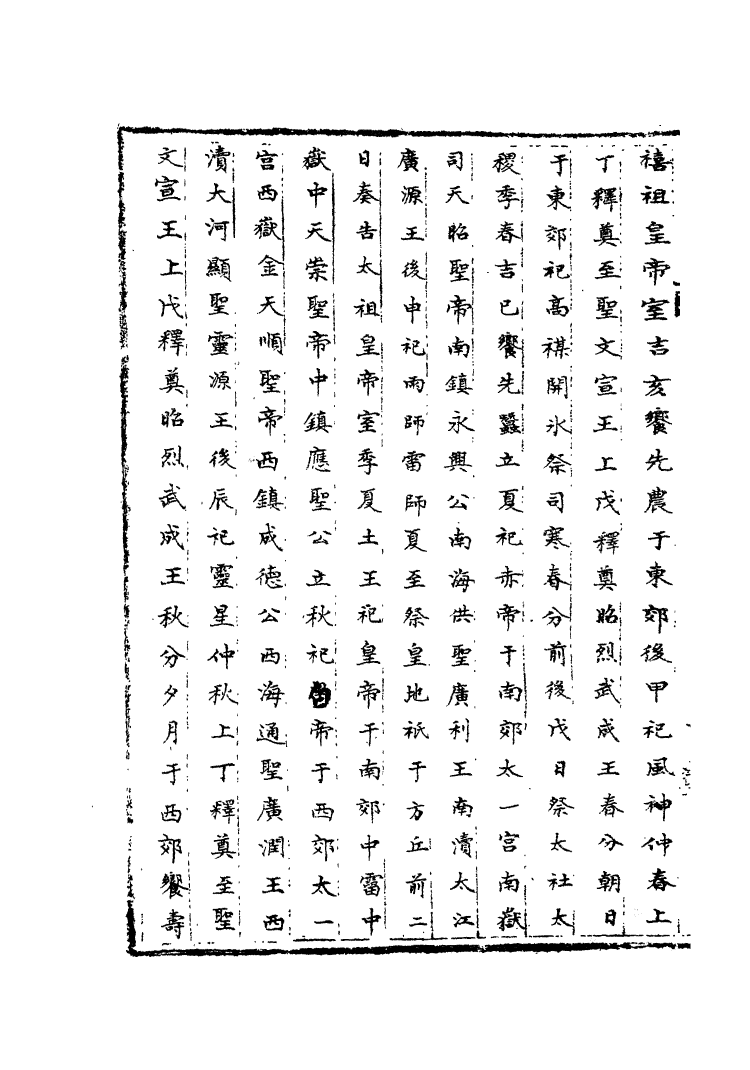 禧祖皇帝室吉亥饗先農于東郊後甲祀風神仲春上
丁釋奠至聖文宣王上戊釋奠昭烈武成王春分朝日
于東郊祀高禖開氷祭司寒春分前後戊日祭太社太
稷季春吉巳饗先蠶立夏祀赤帝于南郊太一宮南嶽
司天昭聖帝南鎮永興公南海洪聖廣利王南瀆大江
廣源王後申祀雨師雷師夏至祭皇地祇于方丘前二
日奏告太祖皇帝室季夏土王祀皇帝于南郊中霤中
嶽中天崇聖帝中鎮應聖公立秋祀帝于西郊太一
宮西嶽金天順聖帝西鎮成德公西海通聖廣潤王西
瀆大河顯聖靈源王後辰祀靈星仲秋上丁釋奠至聖
文宣王上戊釋奠昭烈武成王秋分夕月于西郊饗壽